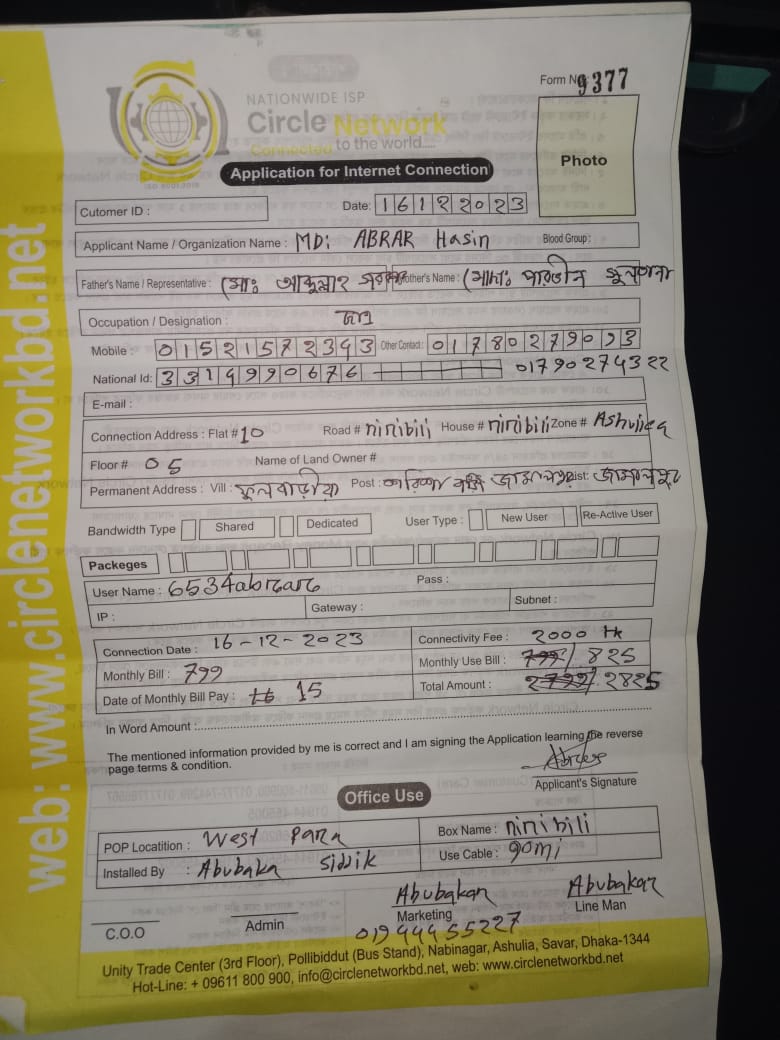 Form No 9377
NATIONWIDE ISP
Circle Network
Connected to the world.....
ISO 9001:2015
Application for Internet Connection
Photo
Cutomer ID :
Date: 16122023
Applicant Name / Organization Name : MD: ABRAR Hasin Blood Group :
Father's Name / Representative : মোঃ Mother's Name : মোছাঃ পারভীন সুলতানা
Occupation / Designation : ছাত্র
Mobile : 01521572393 Other Contact: 01780279093
National Id: 3319990676 01790274322
E-mail :
Connection Address : Flat # 10 Road # niribili House # niribili Zone # Ashuliea
Floor # 05 Name of Land Owner #
Permanent Address : Vill : ফুলবাড়ীয়া Post : জামালপুর Dist: জামালপুর
Bandwidth Type Shared Dedicated User Type : New User Re-Active User
Packeges
User Name : 6534abrar Pass :
IP : Gateway : Subnet :
Connection Date : 16-12-2023 Connectivity Fee : 2000 tk
Monthly Bill : 799 Monthly Use Bill : 799/ 825
Date of Monthly Bill Pay : 15 Total Amount : 2799/ 2825
In Word Amount :
The mentioned information provided by me is correct and I am signing the Application learning the reverse
page terms & condition.
Applicant's Signature
Office Use
POP Locatition : West Para Box Name : niribili
Installed By : Abubaka Siddik Use Cable : 90mi
Abubakar Abubakar
C.O.O Admin Marketing Line Man
01944455227
Unity Trade Center (3rd Floor), Pollibiddut (Bus Stand), Nabinagar, Ashulia, Savar, Dhaka-1344
Hot-Line: + 09611 800 900, info@circlenetworkbd.net, web: www.circlenetworkbd.net
web: www.circlenetworkbd.net